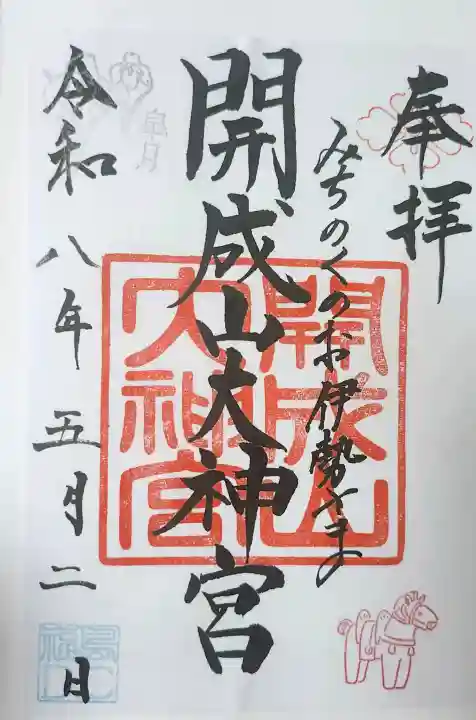 奉拝
みちのくのお伊勢さま
開成山大神宮
開成山大神宮
皐月
令和八年五月二日